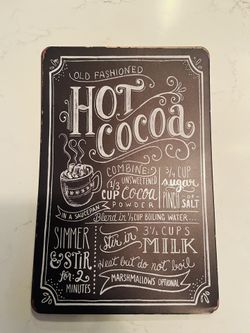 OLD FASHIONED
HOT
COCOA
COMBINE:
1/3 UNSWEETENED
CUP COCOA
POWDER
3/4 CUP
sugar
PINCH OF
SALT
IN A SAUCEPAN
Blend in 1/2 CUP BOILING WATER....
SIMMER
& STIR
for 2
MINUTES
Stir in 3 1/2 CUPS
MILK
Heat but do not boil
MARSHMALLOWS OPTIONAL